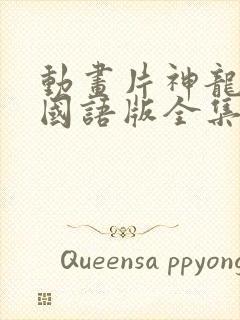 動畫片神龍
國語版全集
Queensa ppyong